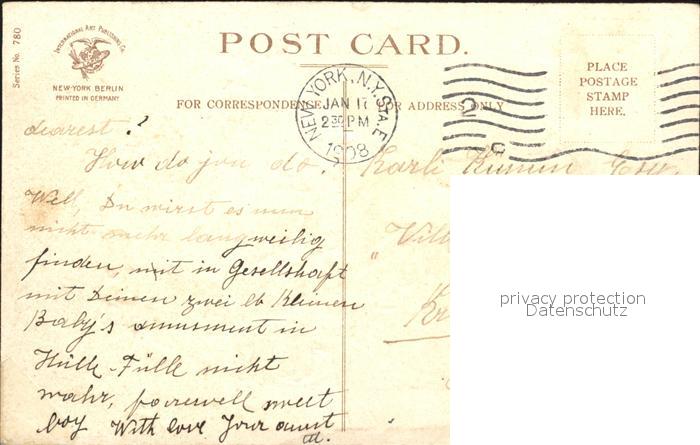 Series No. 780
INTERNATIONAL ART PUBLISHING CO.
NEW-YORK BERLIN
PRINTED IN GERMANY
POST CARD.
FOR CORRESPONDENCE
FOR ADDRESS ONLY
PLACE
POSTAGE
STAMP
HERE.
NEW YORK, N.Y. STA. E
JAN 17
2 30 PM
1908
dearest!
How do you do.
Well, Du wirst es nun
nicht mehr langweilig
finden, mit in Gesellshaft
mit Deinen zwei lb Kleinen
Baby's amusment in
Hülle-Fülle nicht
wahr, farewell sweet
boy With love Your aunt
Karli
privacy protection
Datenschutz